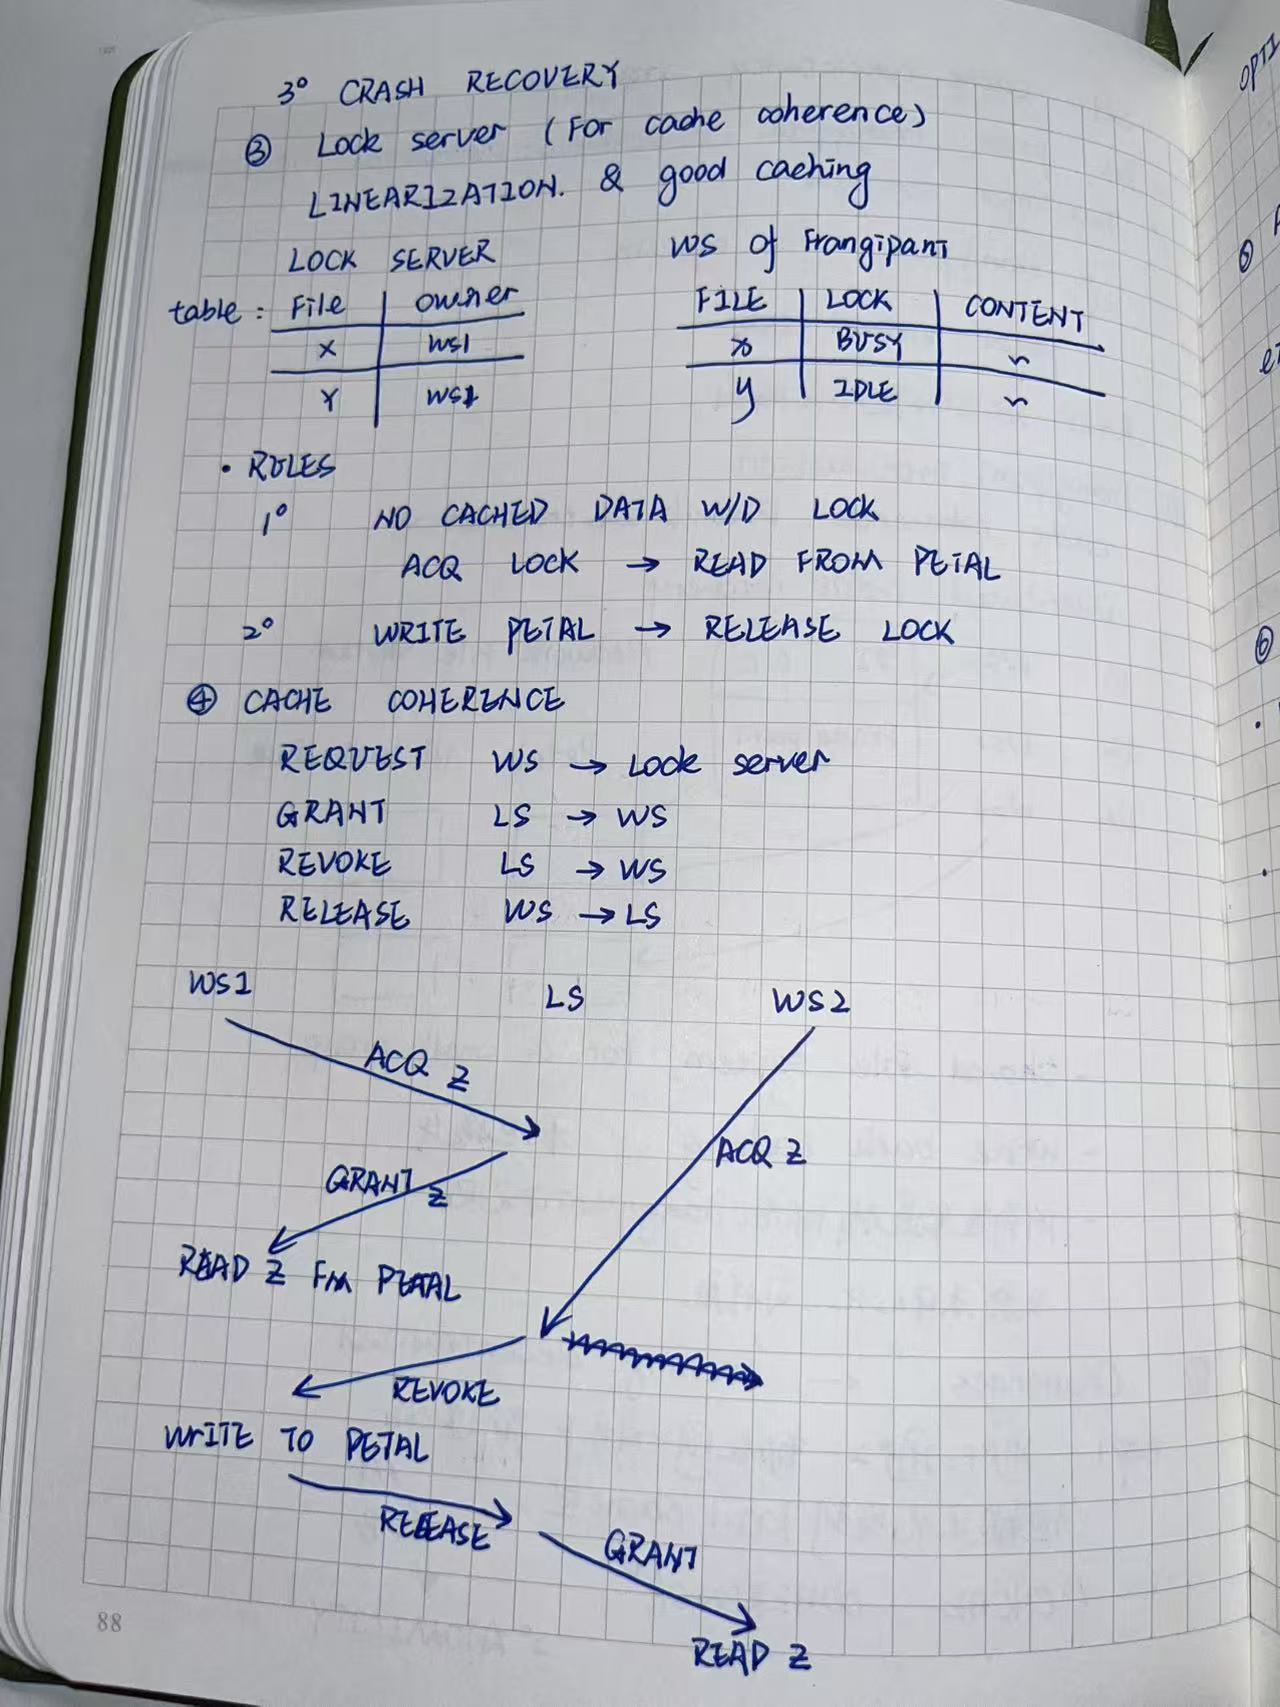 3° CRASH RECOVERY
③ Lock server (For cache coherence)
LINEARIZATION. & good caching
LOCK SERVER
table: File owner
X WS1
Y WS1
WS of Frangipant
FILE LOCK CONTENT
x BUSY ~
y IDLE ~
• RULES
1° NO CACHED DATA W/D LOCK
ACQ LOCK → READ FROM PETAL
2° WRITE PETAL → RELEASE LOCK
④ CACHE COHERENCE
REQUEST WS → Lock server
GRANT LS → WS
REVOKE LS → WS
RELEASE WS → LS
WS1 LS WS2
ACQ Z
ACQ Z
GRANT Z
READ Z FM PETAL
REVOKE
WRITE TO PETAL
RELEASE
GRANT
READ Z
88
OPTI
⑤
⑥